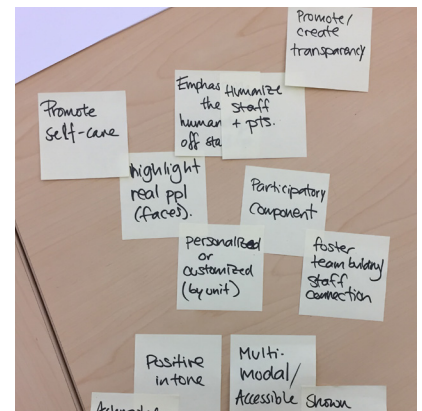 Promote/
create
transparency
Emphas
the
human
off sta
Humanize
staff
+ pts.
Promote
self-care
highlight
real ppl
(faces).
Participatory
component
personalized
or
customized
(by unit)
foster
team building/
staff
connection
Positive
in tone
Multi-
modal/
Accessible
Shown